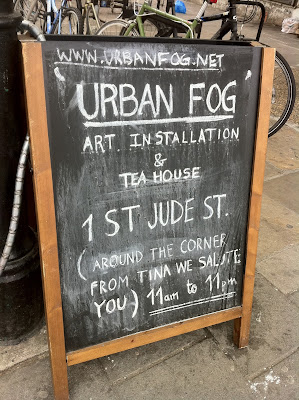 WWW.URBANFOG.NET
URBAN FOG
ART. INSTALLATION
&
TEA HOUSE
1 ST JUDE ST.
(AROUND THE CORNER
FROM TINA WE SALUTE
YOU) 11am to 11pm